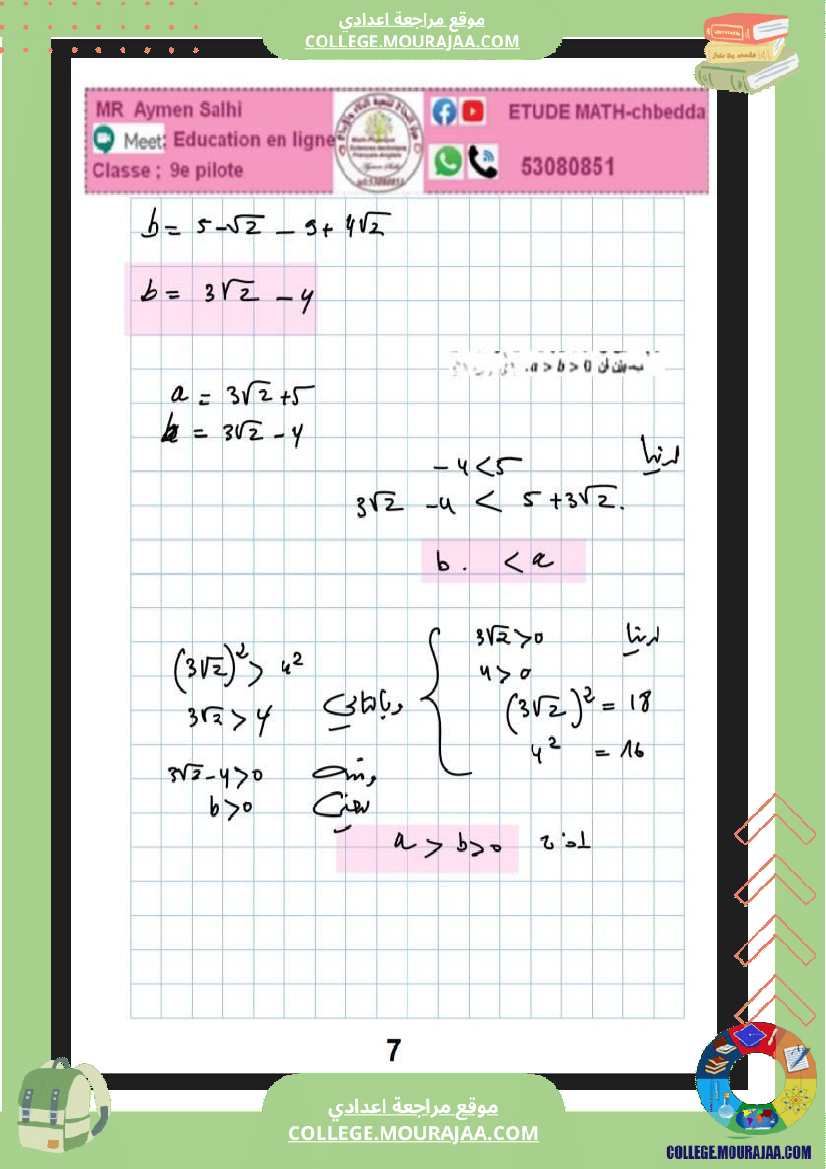 موقع مراجعة اعدادي
COLLEGE.MOURAJAA.COM
MR Aymen Salhi
Meet: Education en ligne
Classe ; 9e pilote
ETUDE MATH-chbedda
53080851
b = 5 - √2 - 9 + 4√2
b = 3√2 - 4
a > b > 0
a = 3√2 + 5
b = 3√2 - 4
لدينا
- 4 < 5
3√2 - 4 < 5 + 3√2.
b . < a
لدينا
3√2 > 0
4 > 0
(3√2)² = 18
4² = 16
وبالتالي
(3√2)² > 4²
3√2 > 4
ومنه 3√2 - 4 > 0
يعني b > 0
a > b > 0
7
موقع مراجعة اعدادي
COLLEGE.MOURAJAA.COM
COLLEGE.MOURAJAA.COM